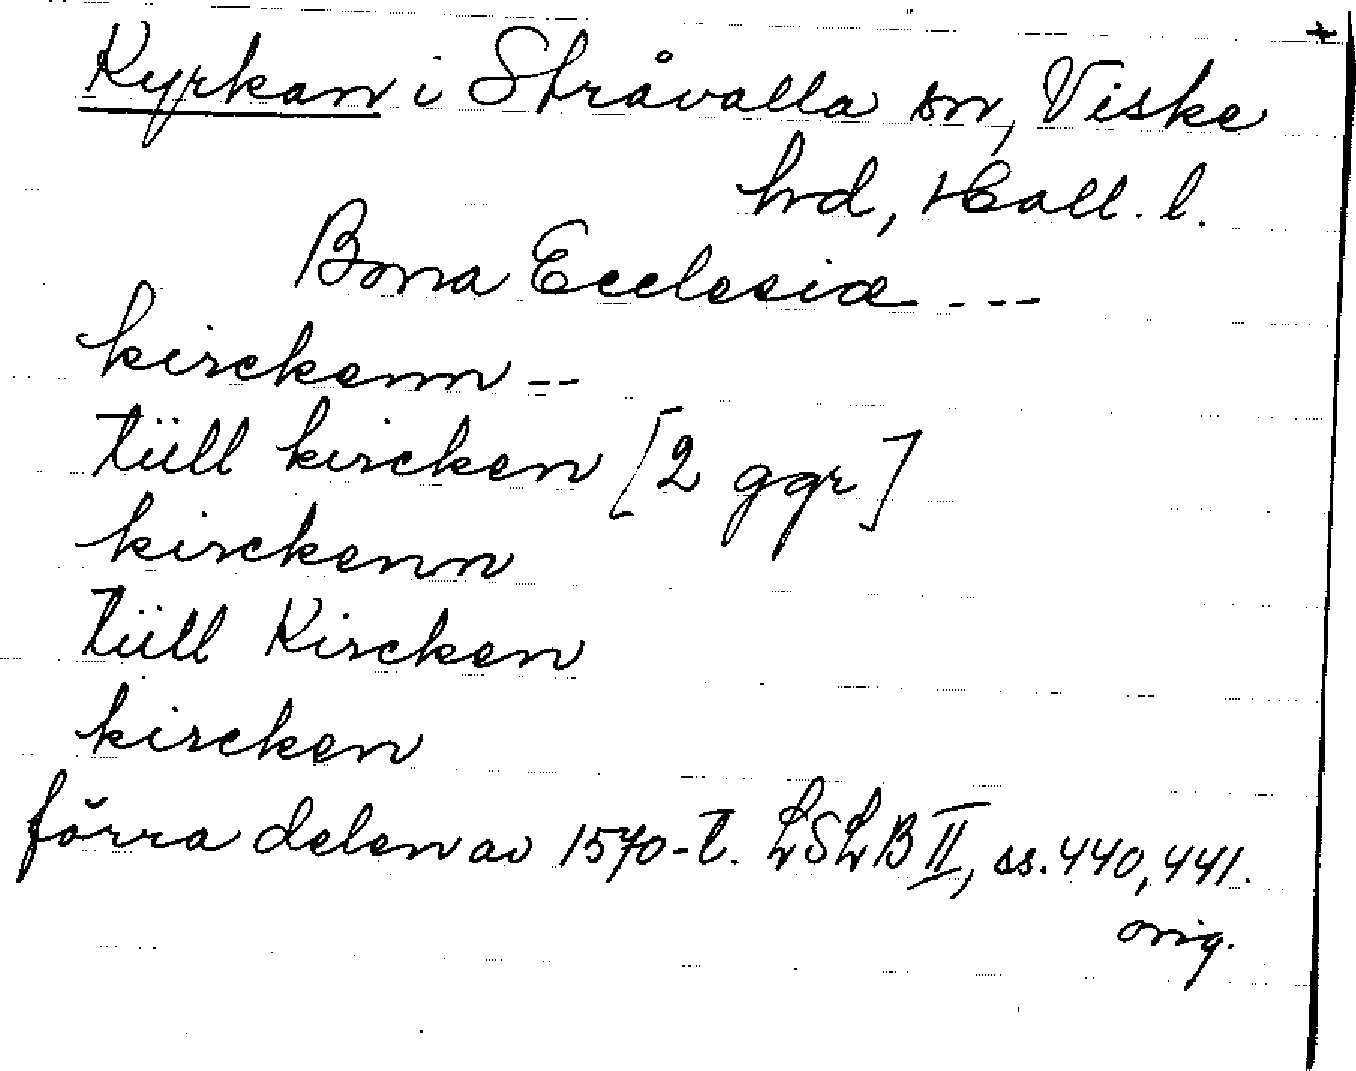 Kyrkan i Stråvalla sn, Viske
hrd, Hall. l.
Bona Ecclesiæ ---
kirckenn --
tüll kircken [2 ggr]
kirckenn
tüll Kircken
kircken
förra delen av 1570-t. LSLB II, ss. 440, 441.
orig.